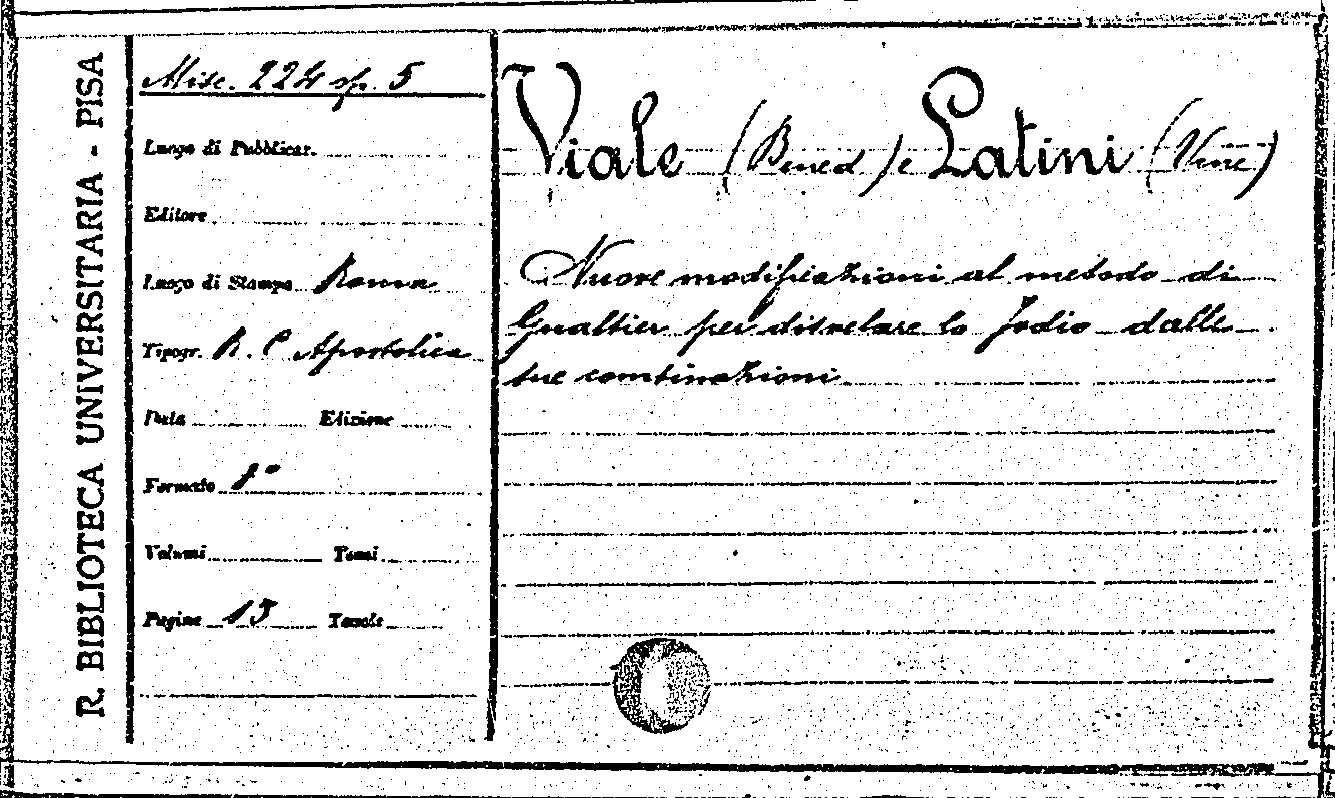 R. BIBLIOTECA UNIVERSITARIA - PISA
Misc. 224 op. 5
Luogo di Pubblicaz.
Editore
Luogo di Stampa Roma
Tipogr. R. C Apostolica
Data Edizione
Formato 8°
Volumi Tomi
Pagine 15 Tavole
Viale (Bened) e Latini (Vinc)
Nuove modificazioni al metodo di
Gualtier per disvelare lo Jodio dalle
sue combinazioni